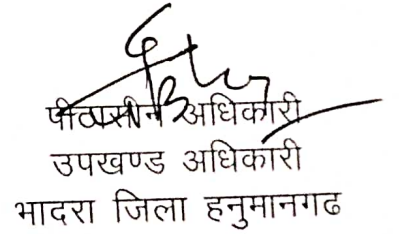 पीठासीन अधिकारी
उपखण्ड अधिकारी
भादरा जिला हनुमानगढ